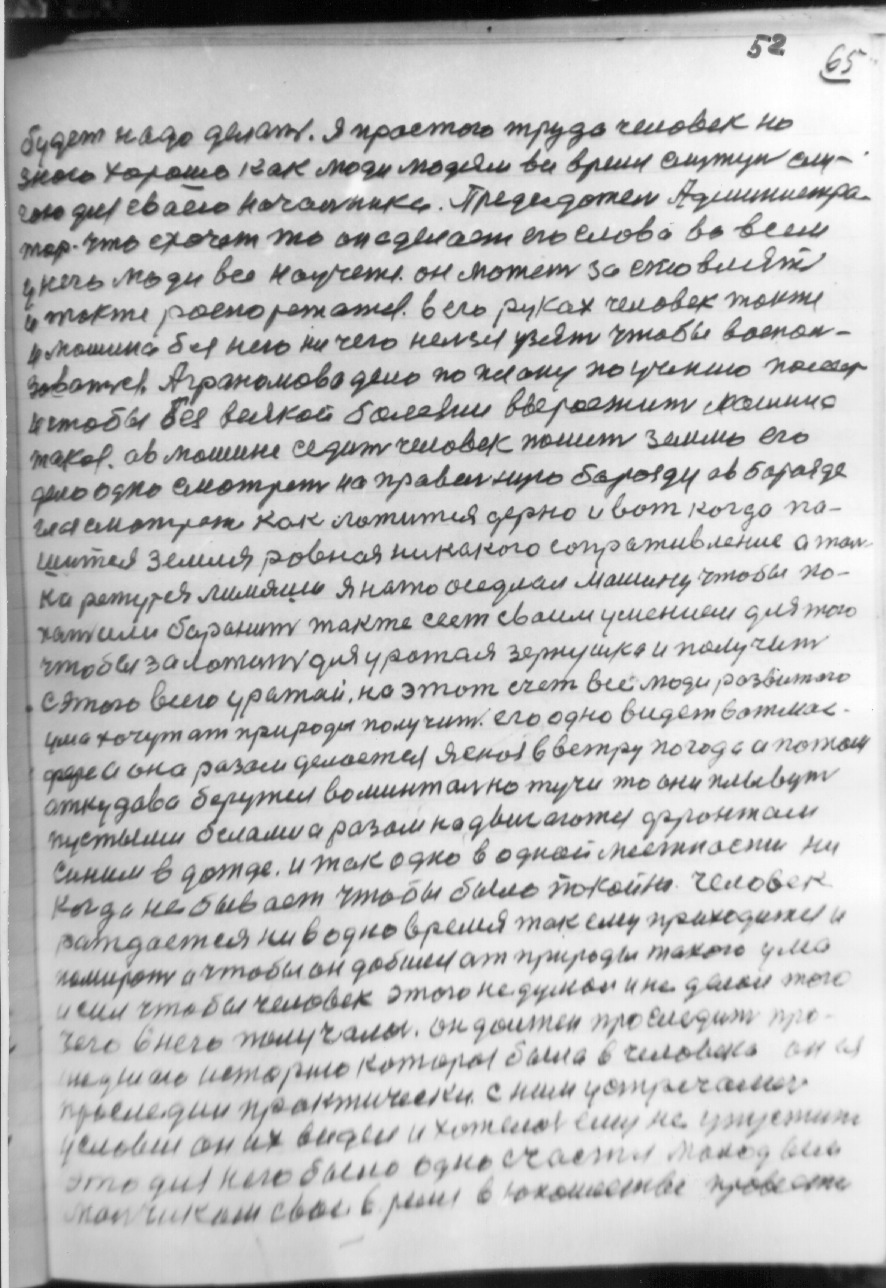 52 65
будет надо делать. Я простого труда человек но
знаю хорошо как люди людям все время служут слу-
гою для сваего началника. Председател Администра-
тор. что схочет то он сделает его слова во всем
у него люди все научены. он может за ставлят
и также распорежатся. в его руках человек также
и машина бея него ни чего нелзя узят чтобы воспол-
зоватся. Аграномова дело по плану по учению
и чтобы бея всякой болезни выростит машина
такая. а в машине седит человек пашит землю его
дело одно смотрет на правилную барозду а в барозде
смотрет как ложится дерно и вот когда па-
шится земля ровная никакого сопративление а тол-
ко режутся лимяши я на то оседлал машину чтобы по-
хат или баранит также сеет сваем умением для того
чтобы заложит для уражая зернушка и получит
с этого всего уражай. на этот счет все люди развитого
ума хочут ат природы получит. его одно видет в атмас-
фере а она разам делается ясная в ветру погода а потом
аткудава берутся воминталко тучи то они плывут
пустыми белами а разам надвигаются фронтам
синим в дожде. и так одно в одной местности ни
когда не бывает чтобы было такойны. человек
раждается ни водно время так ему приходится и
помират а чтобы он добился ат природы такого ума
и сил чтобы человек этого не думал и не делал того
чего в него получалос. он должен проследит про-
шедшею историю которая была в человека он ея
проследил практически с ним устречалися
условия он их видел и хотелос ему не упустит
это для него было одно счастия молодым
малчикам свае время в юношестве провести